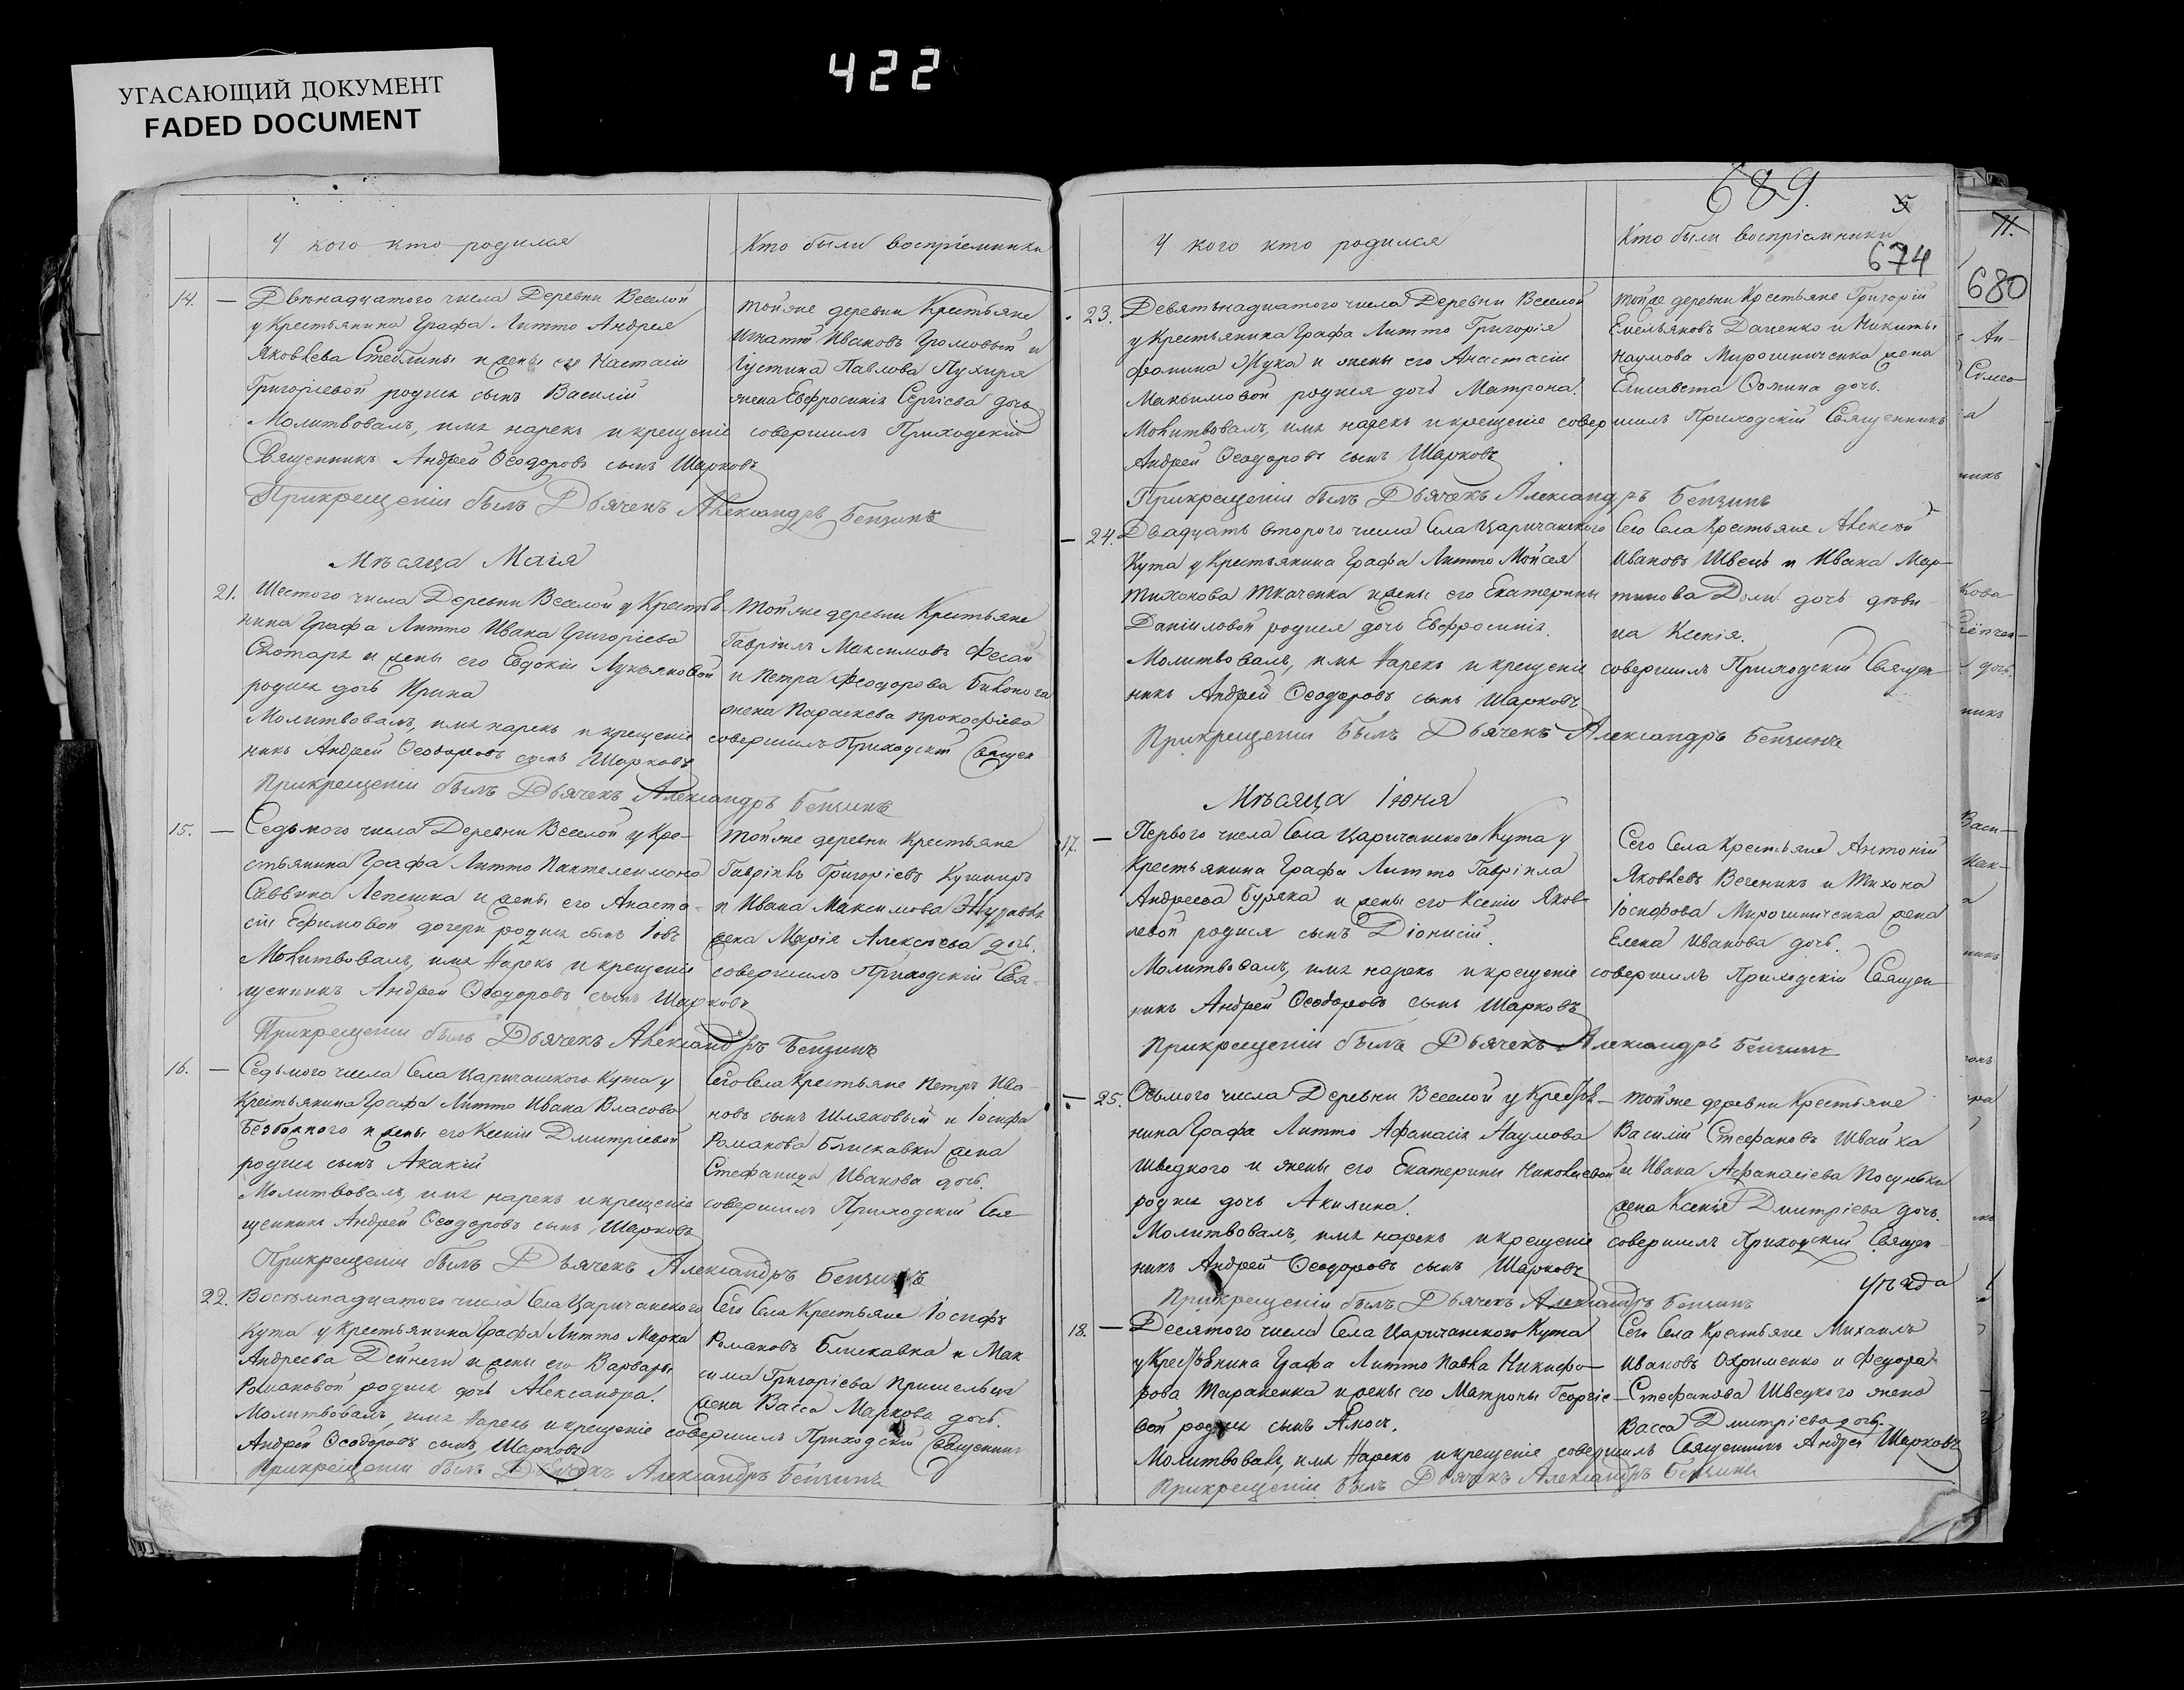 422
УГАСАЮЩИЙ ДОКУМЕНТ
FADED DOCUMENT
У кого кто родился
Кто были воспріемники
14. —
Двѣнадцатого числа Деревни Веселой
у Крестьянина Графа Литто Андрея
Яковлева Стеблины и жены его Настасіи
Григоріевой родися сынъ Василій
Тойже деревни Крестьяне
Игнатій Ивановъ Громовый и
Іустина Павлова Пухиря
жена Евфросинія Сергіева дочь
Молитвовалъ, имя нарекъ и крещеніе совершилъ Приходскій
Священникъ Андрей Ѳеодоровъ сынъ Шарковъ
Прикрещеніи былъ Дьячекъ Александръ Бензинъ
Мѣсяца Маія
21.
Шестого числа Деревни Веселой у Крестья
нина Графа Литто Ивана Григоріева
Снотаря и жены его Евдокіи Лукьяновой
родися дочь Ирина
Тойже деревни Крестьяне
Гавріилъ Максимовъ Фесай
и Петра Феодорова Билонога
жена Параскева Прокофіева
Молитвовалъ, имя нарекъ и крещеніе совершилъ Приходскій Священ
никъ Андрей Ѳеодоровъ сынъ Шарковъ
Прикрещеніи былъ Дьячекъ Александръ Бензинъ
15. —
Седьмого числа Деревни Веселой у Кре-
стьянина Графа Литто Пантелеимона
Саввина Лепешка и жены его Анаста-
сіи Ефимовой дочери родися сынъ Іовъ
Тойже деревни Крестьяне
Гавріилъ Григоріевъ Кушниръ
и Ивана Максимова Журавля
жена Марія Алексіева дочь.
Молитвовалъ, имя Нарекъ и крещеніе совершилъ Приходскій Свя-
щенникъ Андрей Ѳеодоровъ сынъ Шарковъ
Прикрещеніи былъ Дьячекъ Александръ Бензинъ
16. —
Седьмого числа Села Царичанского Кута у
Крестьянина Графа Литто Ивана Власова
Безбожного и жены его Ксеніи Дмитріевой
родися сынъ Акакій
Сего Села Крестьяне Петръ Ива-
новъ сынъ Шляховый и Іосифа
Романова Блискавки жена
Стефанида Иванова дочь.
Молитвовалъ, имя нарекъ и крещеніе совершилъ Приходскій Свя
щенникъ Андрей Ѳеодоровъ сынъ Шарковъ
Прикрещеніи былъ Дьячекъ Александръ Бензинъ
22.
Восѣмнадцатого числа Села Царичанского
Кута у Крестьянина Графа Литто Марка
Андреева Дейнеги и жены его Варвары
Романовой родися дочь Александра.
Сего Села Крестьяне Іосифъ
Романовъ Блискавка и Мак-
сима Григоріева Пришельца
жена Васса Маркова дочь.
Молитвовалъ, имя Нарекъ и крещеніе совершилъ Приходскій Священникъ
Андрей Ѳеодоровъ сынъ Шарковъ
Прикрещеніи былъ Дьячекъ Александръ Бензинъ
689.
5
У кого кто родился
Кто были воспріемники
674
23.
Девятьнадцатого числа Деревни Веселой
у Крестьянина Графа Литто Григорія
Фомина Жука и жены его Анастасіи
Максимовой родися дочь Матрона.
Тойже деревни Крестьяне Григорій
Емельяновъ Даценко и Никиты
Наумова Мирошниченка жена
Елисавета Фомина дочь.
Молитвовалъ, имя нарекъ и крещеніе совершилъ Приходскій Священникъ
Андрей Ѳеодоровъ сынъ Шарковъ
Прикрещеніи былъ Дьячекъ Александръ Бензинъ
— 24.
Двадцать второго числа Села Царичанского
Кута у Крестьянина Графа Литто Мойсея
Тихонова Ткаченка и жены его Екатерины
Даніиловой родися дочь Евфросинія.
Сего Села Крестьяне Алексѣй
Ивановъ Швець и Ивана Мар-
тинова Доли дочь дѣви-
ца Ксенія.
Молитвовалъ, имя Нарекъ и крещеніе совершилъ Приходскій Священ
никъ Андрей Ѳеодоровъ сынъ Шарковъ
Прикрещеніи былъ Дьячекъ Александръ Бензинъ
Мѣсяца Іюня
17. —
Первого числа Села Царичанского Кута у
Крестьянина Графа Литто Гавріила
Андреева Буряка и жены его Ксеніи Яков-
левой родися сынъ Діонисій.
Сего Села Крестьяне Антоній
Яковлевъ Веченикъ и Тихона
Іосифова Мирошниченка жена
Елена Иванова дочь.
Молитвовалъ, имя нарекъ и крещеніе совершилъ Приходскій Священ
никъ Андрей Ѳеодоровъ сынъ Шарковъ
Прикрещеніи былъ Дьячекъ Александръ Бензинъ
— 25.
Осьмого числа Деревни Веселой у Крестья-
нина Графа Литто Афанасія Наумова
Шведкого и жены его Екатерини Николаевой
родися дочь Акилина.
Тойже деревни Крестьяне
Василій Стефановъ Швайка
и Ивана Афанасіева Посуньки
жена Ксенія Дмитріева дочь.
Молитвовалъ, имя нарекъ и крещеніе совершилъ Приходскій Священ-
никъ Андрей Ѳеодоровъ сынъ Шарковъ
Прикрещеніи былъ Дьячекъ Александръ Бензинъ
уѣзда
18. —
Десятого числа Села Царичанского Кута
у Крестьянина Графа Литто Павла Никифо-
рова Тараненка и жены его Матроны Георгіе-
вой родися сынъ Амосъ.
Сего Села Крестьяне Михаилъ
Ивановъ Охрименко и Федора
Стефанова Швецкого жена
Васса Дмитріева дочь.
Молитвовалъ, имя Нарекъ и крещеніе совершилъ Священникъ Андрей Шарковъ
Прикрещеніи былъ Дьячекъ Александръ Бензинъ
680